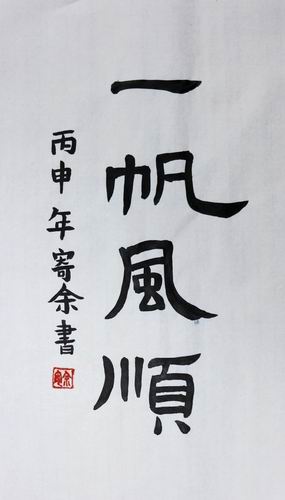 一帆風順
丙申年寄余書